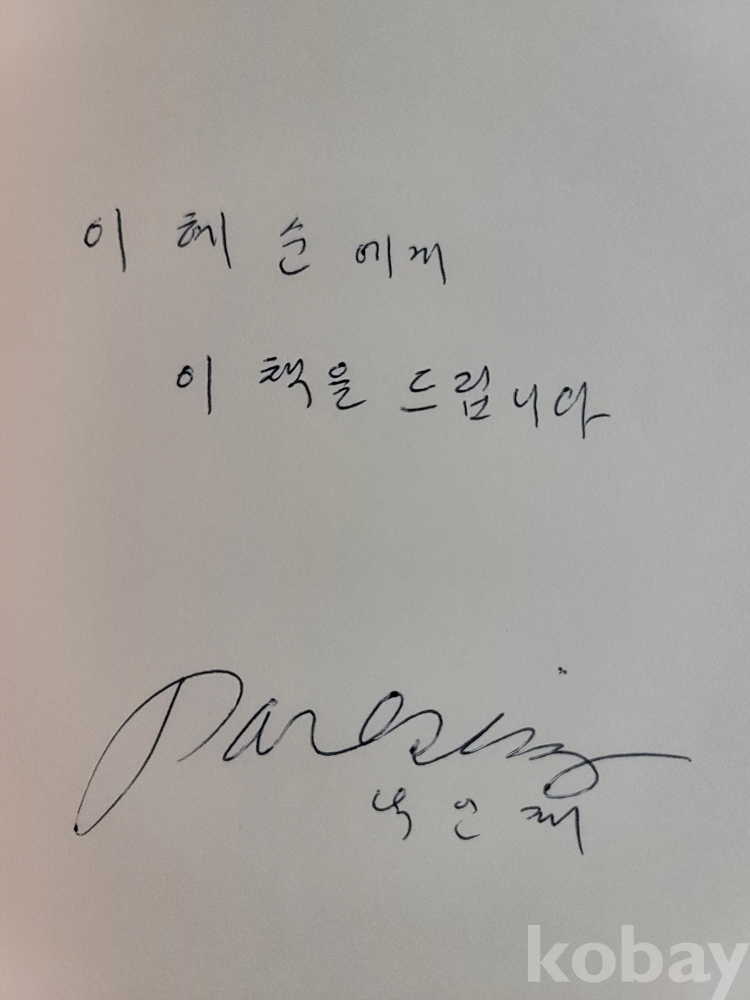 이 혜 순 에게
이 책을 드립니다
박 인 재
kobay